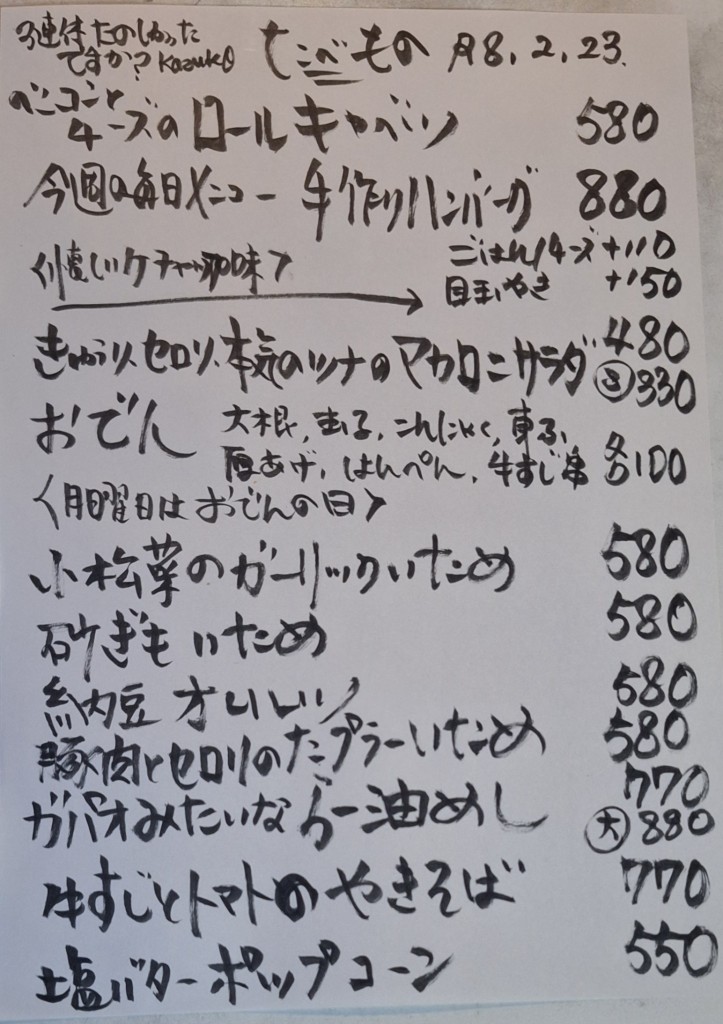 3連休たのしかった
ですか？Kazuko
たべもの R8.2.23.
ベーコンと
チーズのロールキャベツ 580
今週の毎日メニュー 手作りハンバーグ 880
〈懐しいケチャップ味〉 ごはん/チーズ +110
目玉やき +150
きゅうり、セロリ、本気のツナのマカロニサラダ 480
小 330
おでん 大根、玉子、こんにゃく、豆ふ、
厚あげ、はんぺん、牛すじ串 各100
〈月曜日はおでんの日〉
小松菜のガーリックいため 580
砂ぎもいため 580
納豆オムレツ 580
豚肉とセロリのナンプラーいため 580
ガパオみたいならー油めし 770
大 880
牛すじとトマトのやきそば 770
塩バターポップコーン 550